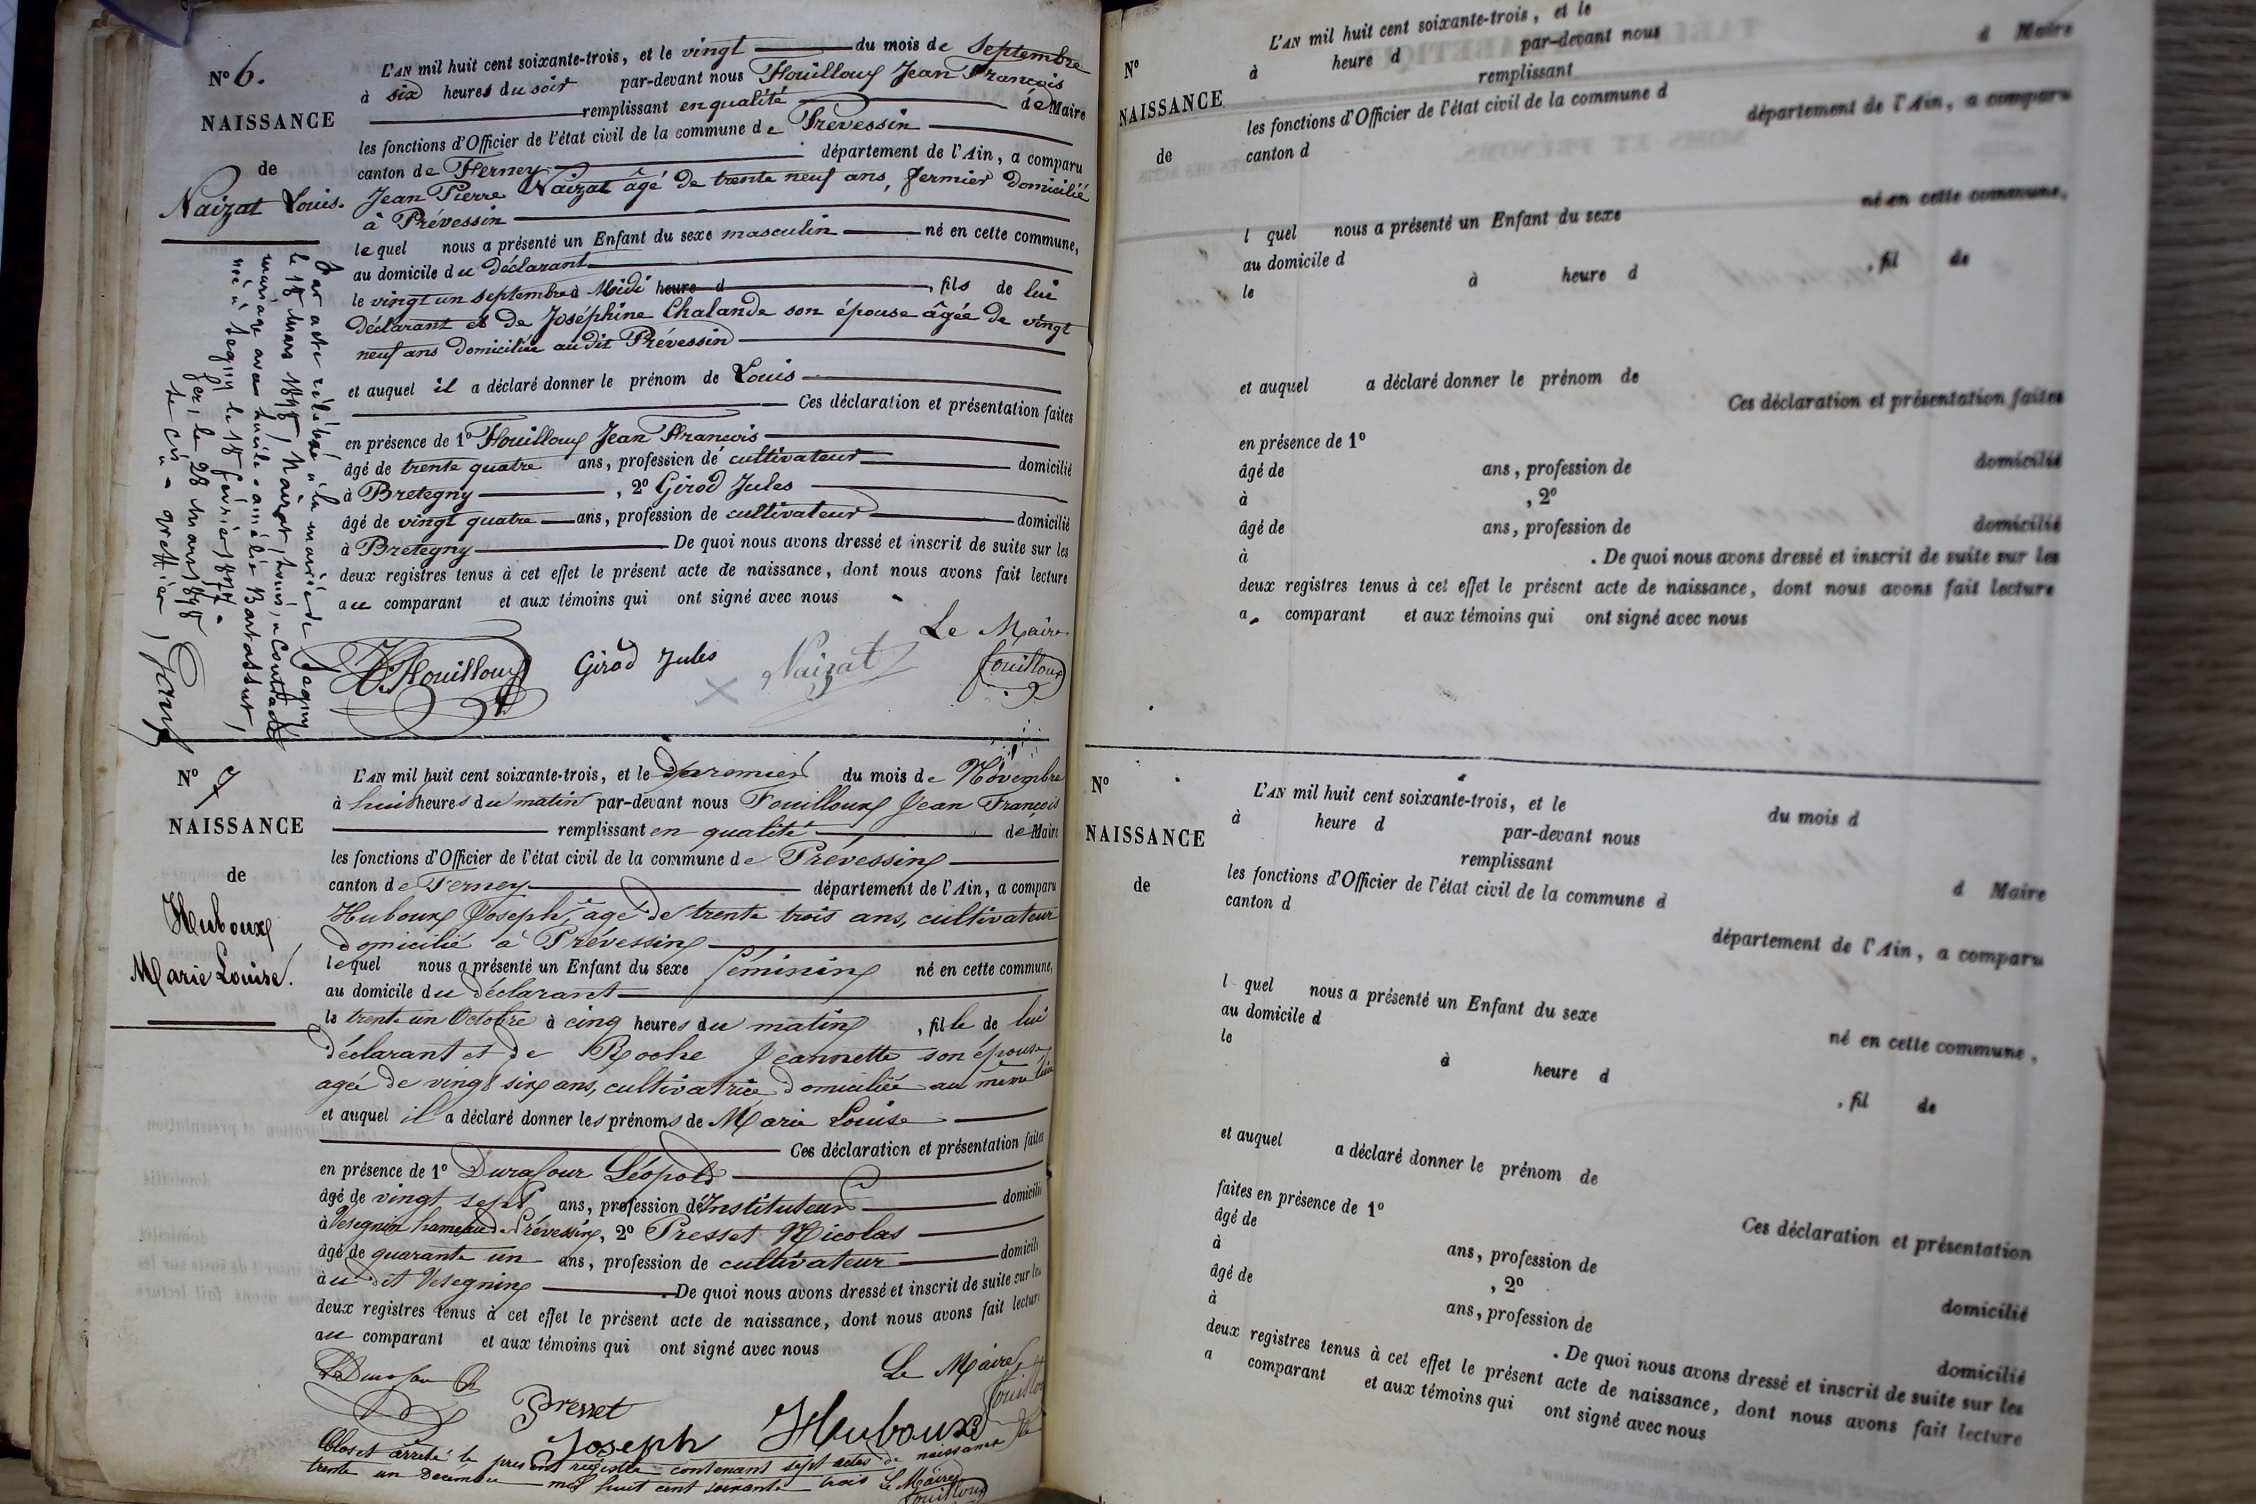 N° 6.
NAISSANCE
de
Naizat Louis.
L'AN mil huit cent soixante-trois, et le vingt du mois de Septembre
à six heures du soir par-devant nous Fouilloux Jean François
remplissant en qualité de Maire
les fonctions d'Officier de l'état civil de la commune de Prévessin
canton de Ferney département de l'Ain, a comparu
Jean Pierre Naizat âgé de trente neuf ans, fermier domicilié
à Prévessin
lequel nous a présenté un Enfant du sexe masculin né en cette commune,
au domicile du déclarant
le vingt un septembre à Midi heure d , fils de lui
déclarant et de Joséphine Chalande son épouse âgée de vingt
neuf ans domiciliée au dit Prévessin
et auquel il a déclaré donner le prénom de Louis
Ces déclaration et présentation faites
en présence de 1° Fouilloux Jean François
âgé de trente quatre ans, profession de cultivateur domicilié
à Bretegny , 2° Girod Jules
âgé de vingt quatre ans, profession de cultivateur domicilié
à Bretegny De quoi nous avons dressé et inscrit de suite sur les
deux registres tenus à cet effet le présent acte de naissance, dont nous avons fait lecture
au comparant et aux témoins qui ont signé avec nous
Le Maire
Fouilloux Girod Jules Naizat Fouilloux
Par acte célébré à la mairie de Segny
le 18 mars 1898, Naizat, Louis, a contracté
mariage avec Lucile Amélie Bartassut,
née à Segny le 18 février 1877.
Gex le 28 mars 1898
Le Cis greffier,
N° 7
NAISSANCE
de
Huboux
Marie Louise.
L'AN mil huit cent soixante-trois, et le premier du mois de Novembre
à huit heures du matin par-devant nous Fouilloux Jean François
remplissant en qualité de Maire
les fonctions d'Officier de l'état civil de la commune de Prévessin
canton de Ferney département de l'Ain, a comparu
Huboux Joseph, âgé de trente trois ans, cultivateur
domicilié à Prévessin
lequel nous a présenté un Enfant du sexe féminin né en cette commune,
au domicile du déclarant
le trente un Octobre à cinq heures du matin , fille de lui
déclarant et de Roche Jeannette son épouse
agée de vingt six ans, cultivatrice domiciliée au même lieu
et auquel il a déclaré donner les prénoms de Marie Louise
Ces déclaration et présentation faites
en présence de 1° Durafour Léopold
âgé de vingt sept ans, profession d'Instituteur domicilié
à Vesegnin hameau de Prévessin, 2° Presset Nicolas
âgé de quarante un ans, profession de cultivateur domicilié
au dit Vesegnin De quoi nous avons dressé et inscrit de suite sur les
deux registres tenus à cet effet le présent acte de naissance, dont nous avons fait lecture
au comparant et aux témoins qui ont signé avec nous
Le Maire
Durafour Presset Fouilloux
Joseph Huboux
Clos et arrêté le présent registre contenant sept actes de naissance le
trente un Décembre mil huit cent soixante trois Le Maire
Fouilloux
N°
NAISSANCE
de
L'AN mil huit cent soixante-trois, et le
à heure d par-devant nous
remplissant d Maire
les fonctions d'Officier de l'état civil de la commune d
canton d département de l'Ain, a comparu
l quel nous a présenté un Enfant du sexe né en cette commune,
au domicile d
le à heure d , fil de
et auquel a déclaré donner le prénom de
Ces déclaration et présentation faites
en présence de 1°
âgé de ans, profession de domicilié
à , 2°
âgé de ans, profession de domicilié
à . De quoi nous avons dressé et inscrit de suite sur les
deux registres tenus à cet effet le présent acte de naissance, dont nous avons fait lecture
a comparant et aux témoins qui ont signé avec nous
N°
NAISSANCE
de
L'AN mil huit cent soixante-trois, et le du mois d
à heure d par-devant nous
remplissant d Maire
les fonctions d'Officier de l'état civil de la commune d
canton d département de l'Ain, a comparu
l quel nous a présenté un Enfant du sexe né en cette commune,
au domicile d
le à heure d , fil de
et auquel a déclaré donner le prénom de
Ces déclaration et présentation
faites en présence de 1°
âgé de ans, profession de domicilié
à , 2°
âgé de ans, profession de domicilié
à . De quoi nous avons dressé et inscrit de suite sur les
deux registres tenus à cet effet le présent acte de naissance, dont nous avons fait lecture
a comparant et aux témoins qui ont signé avec nous